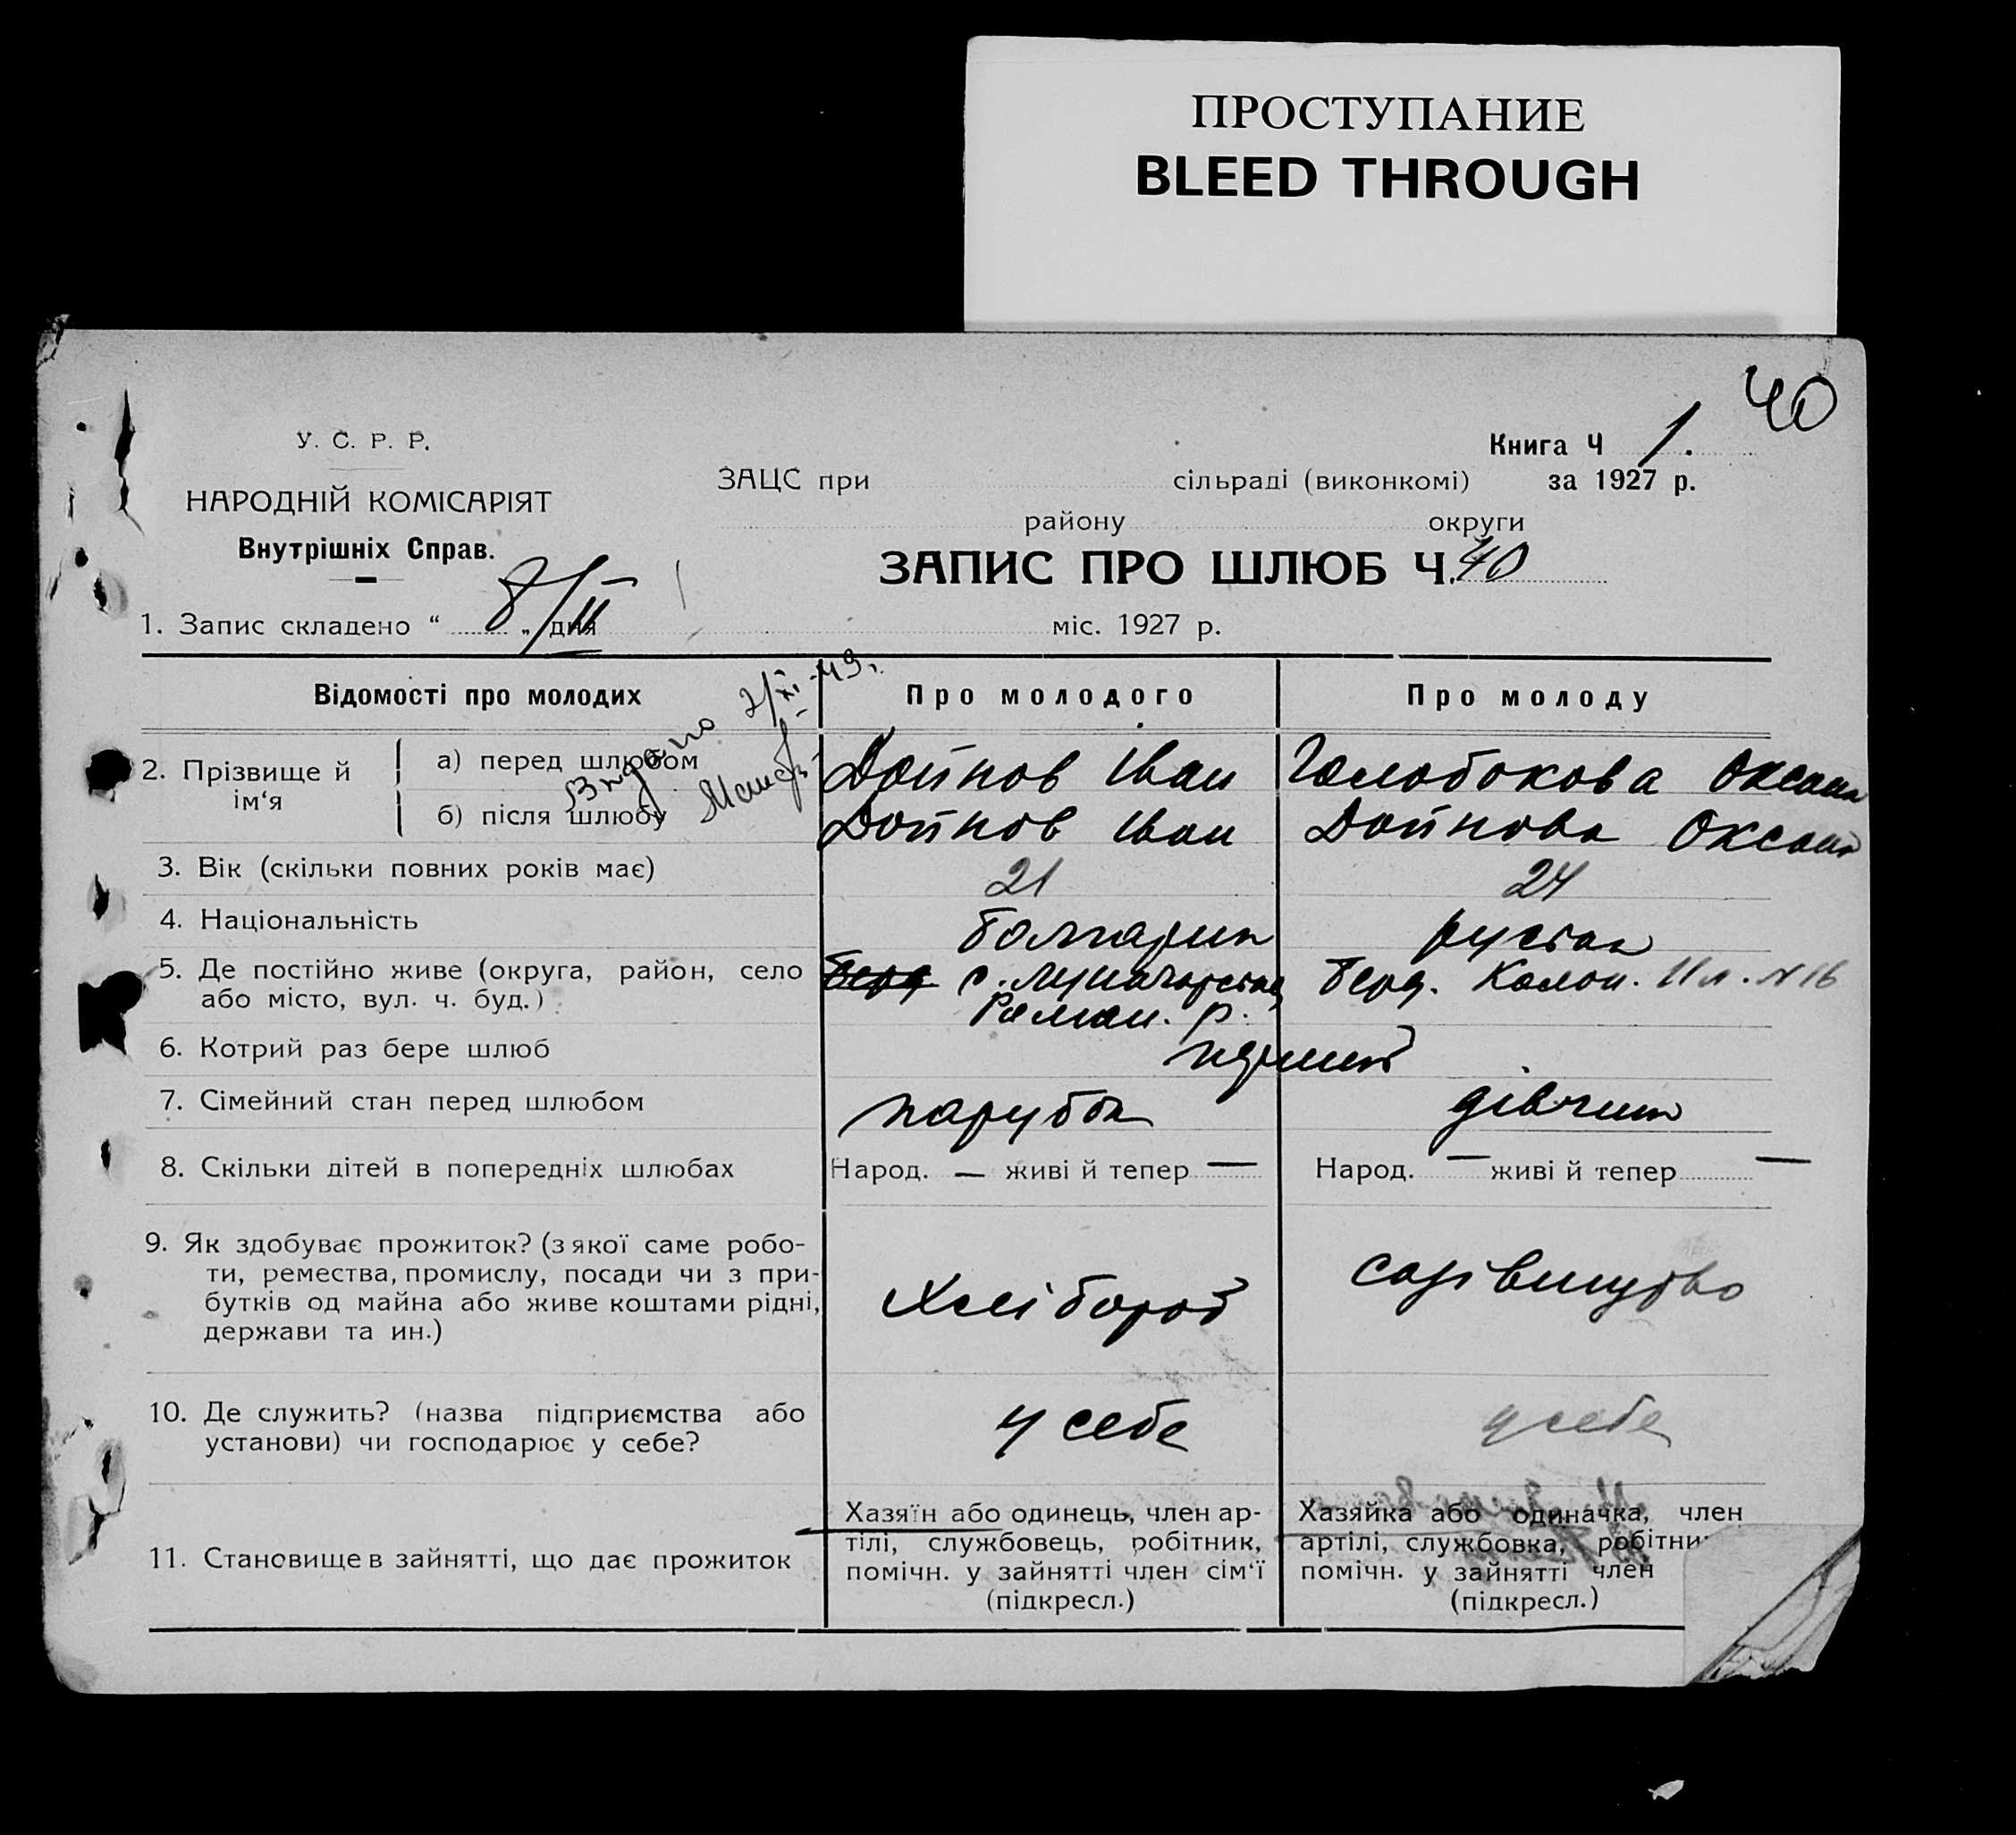 ПРОСТУПАНИЕ
BLEED THROUGH
40
У. С. Р. Р.
НАРОДНІЙ КОМІСАРІЯТ
Внутрішніх Справ.
Книга Ч 1.
ЗАЦС при сільраді (виконкомі) за 1927 р.
району округи
ЗАПИС ПРО ШЛЮБ Ч. 40
1. Запис складено “ 8/II „ дня міс. 1927 р.
Видано 2/XI-49.
Відомості про молодих Про молодого Про молоду
2. Прізвище й ім‘я
а) перед шлюбом Дойнов Іван Голобокова Оксана
б) після шлюбу Дойнов Іван Дойнова Оксана
3. Вік (скільки повних років має) 21 24
4. Національність болгарин руська
5. Де постійно живе (округа, район, село Берд с. Луначарське Берд. Колон. N 16
або місто, вул. ч. буд.) Роман. р.
6. Котрий раз бере шлюб перший
7. Сімейний стан перед шлюбом парубок дівчина
8. Скільки дітей в попередніх шлюбах Народ. — живі й тепер — Народ. — живі й тепер —
9. Як здобуває прожиток? (з якої саме робо-
ти, ремества, промислу, посади чи з при-
бутків од майна або живе коштами рідні,
держави та ин.)
Хлібороб садівництво
10. Де служить? (назва підприємства або
установи) чи господарює у себе?
у себе у себе
11. Становище в зайнятті, що дає прожиток
Хазяїн або одинець, член ар-
тілі, службовець, робітник,
помічн. у зайнятті член сім‘ї
(підкресл.)
Хазяйка або одиначка, член
артілі, службовка, робітни
помічн. у зайнятті член
(підкресл.)